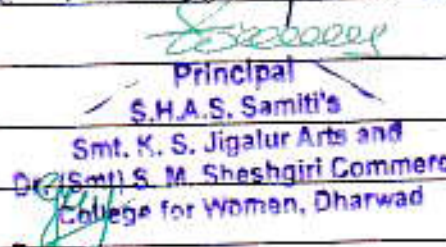 Principal
S.H.A.S. Samiti's
Smt. K. S. Jigalur Arts and
Dr. (Smt) S. M. Sheshgiri Commerc
College for Women, Dharwad